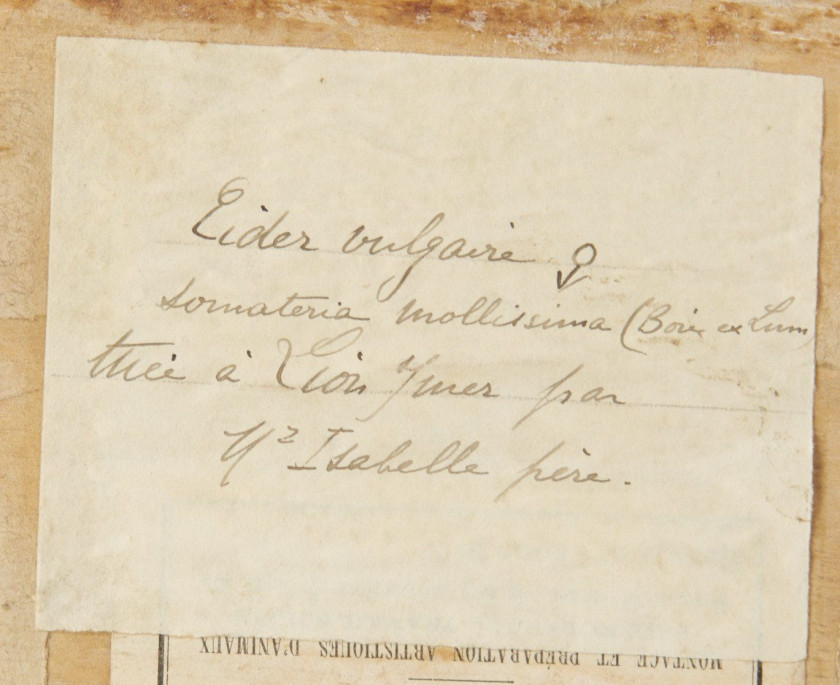 Eider vulgaire ♀
somateria mollissima (Boie ex Linn)
tuée à Lion s/mer par
Mr Isabelle père.
MONTAGE ET PRÉPARATION ARTISTIQUES D'ANIMAUX